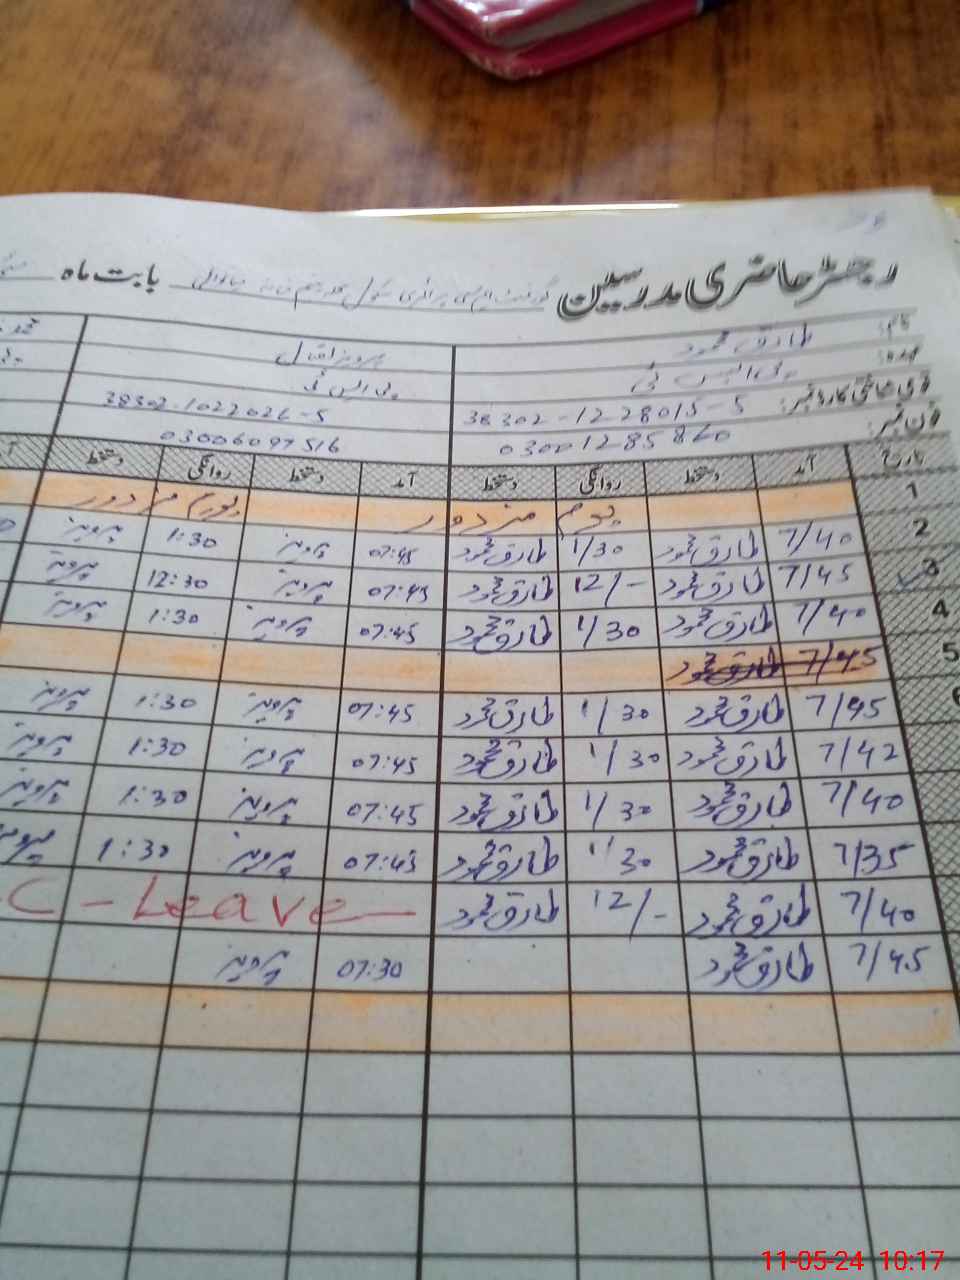 رجسٹر حاضری مدرسین گورنمنٹ ایم سی پرائمری سکول میانوالی بابت ماہ
نام: طارق محمود پرویز اقبال
عہدہ: پی ایس ٹی پی ایس ٹی
قومی شناختی کارڈ نمبر: 38302-1228015-5 38302-1022026-5
فون نمبر: 03001285860 03006097516
تاریخ آمد دستخط روانگی دستخط آمد دستخط روانگی دستخط
1 یوم مزدور یوم مزدور
2 7/40 طارق محمود 1/30 طارق محمود 07:45 پرویز 1:30 پرویز
3 7/45 طارق محمود 12/- طارق محمود 07:45 پرویز 12:30 پرویز
4 7/40 طارق محمود 1/30 طارق محمود 07:45 پرویز 1:30 پرویز
5 7/45 طارق محمود
6 7/45 طارق محمود 1/30 طارق محمود 07:45 پرویز 1:30 پرویز
7/42 طارق محمود 1/30 طارق محمود 07:45 پرویز 1:30 پرویز
7/40 طارق محمود 1/30 طارق محمود 07:45 پرویز 1:30 پرویز
7/35 طارق محمود 1/30 طارق محمود 07:45 پرویز 1:30 پرویز
7/40 طارق محمود 12/- طارق محمود C-Leave
7/45 طارق محمود 07:30 پرویز
11-05-24 10:17